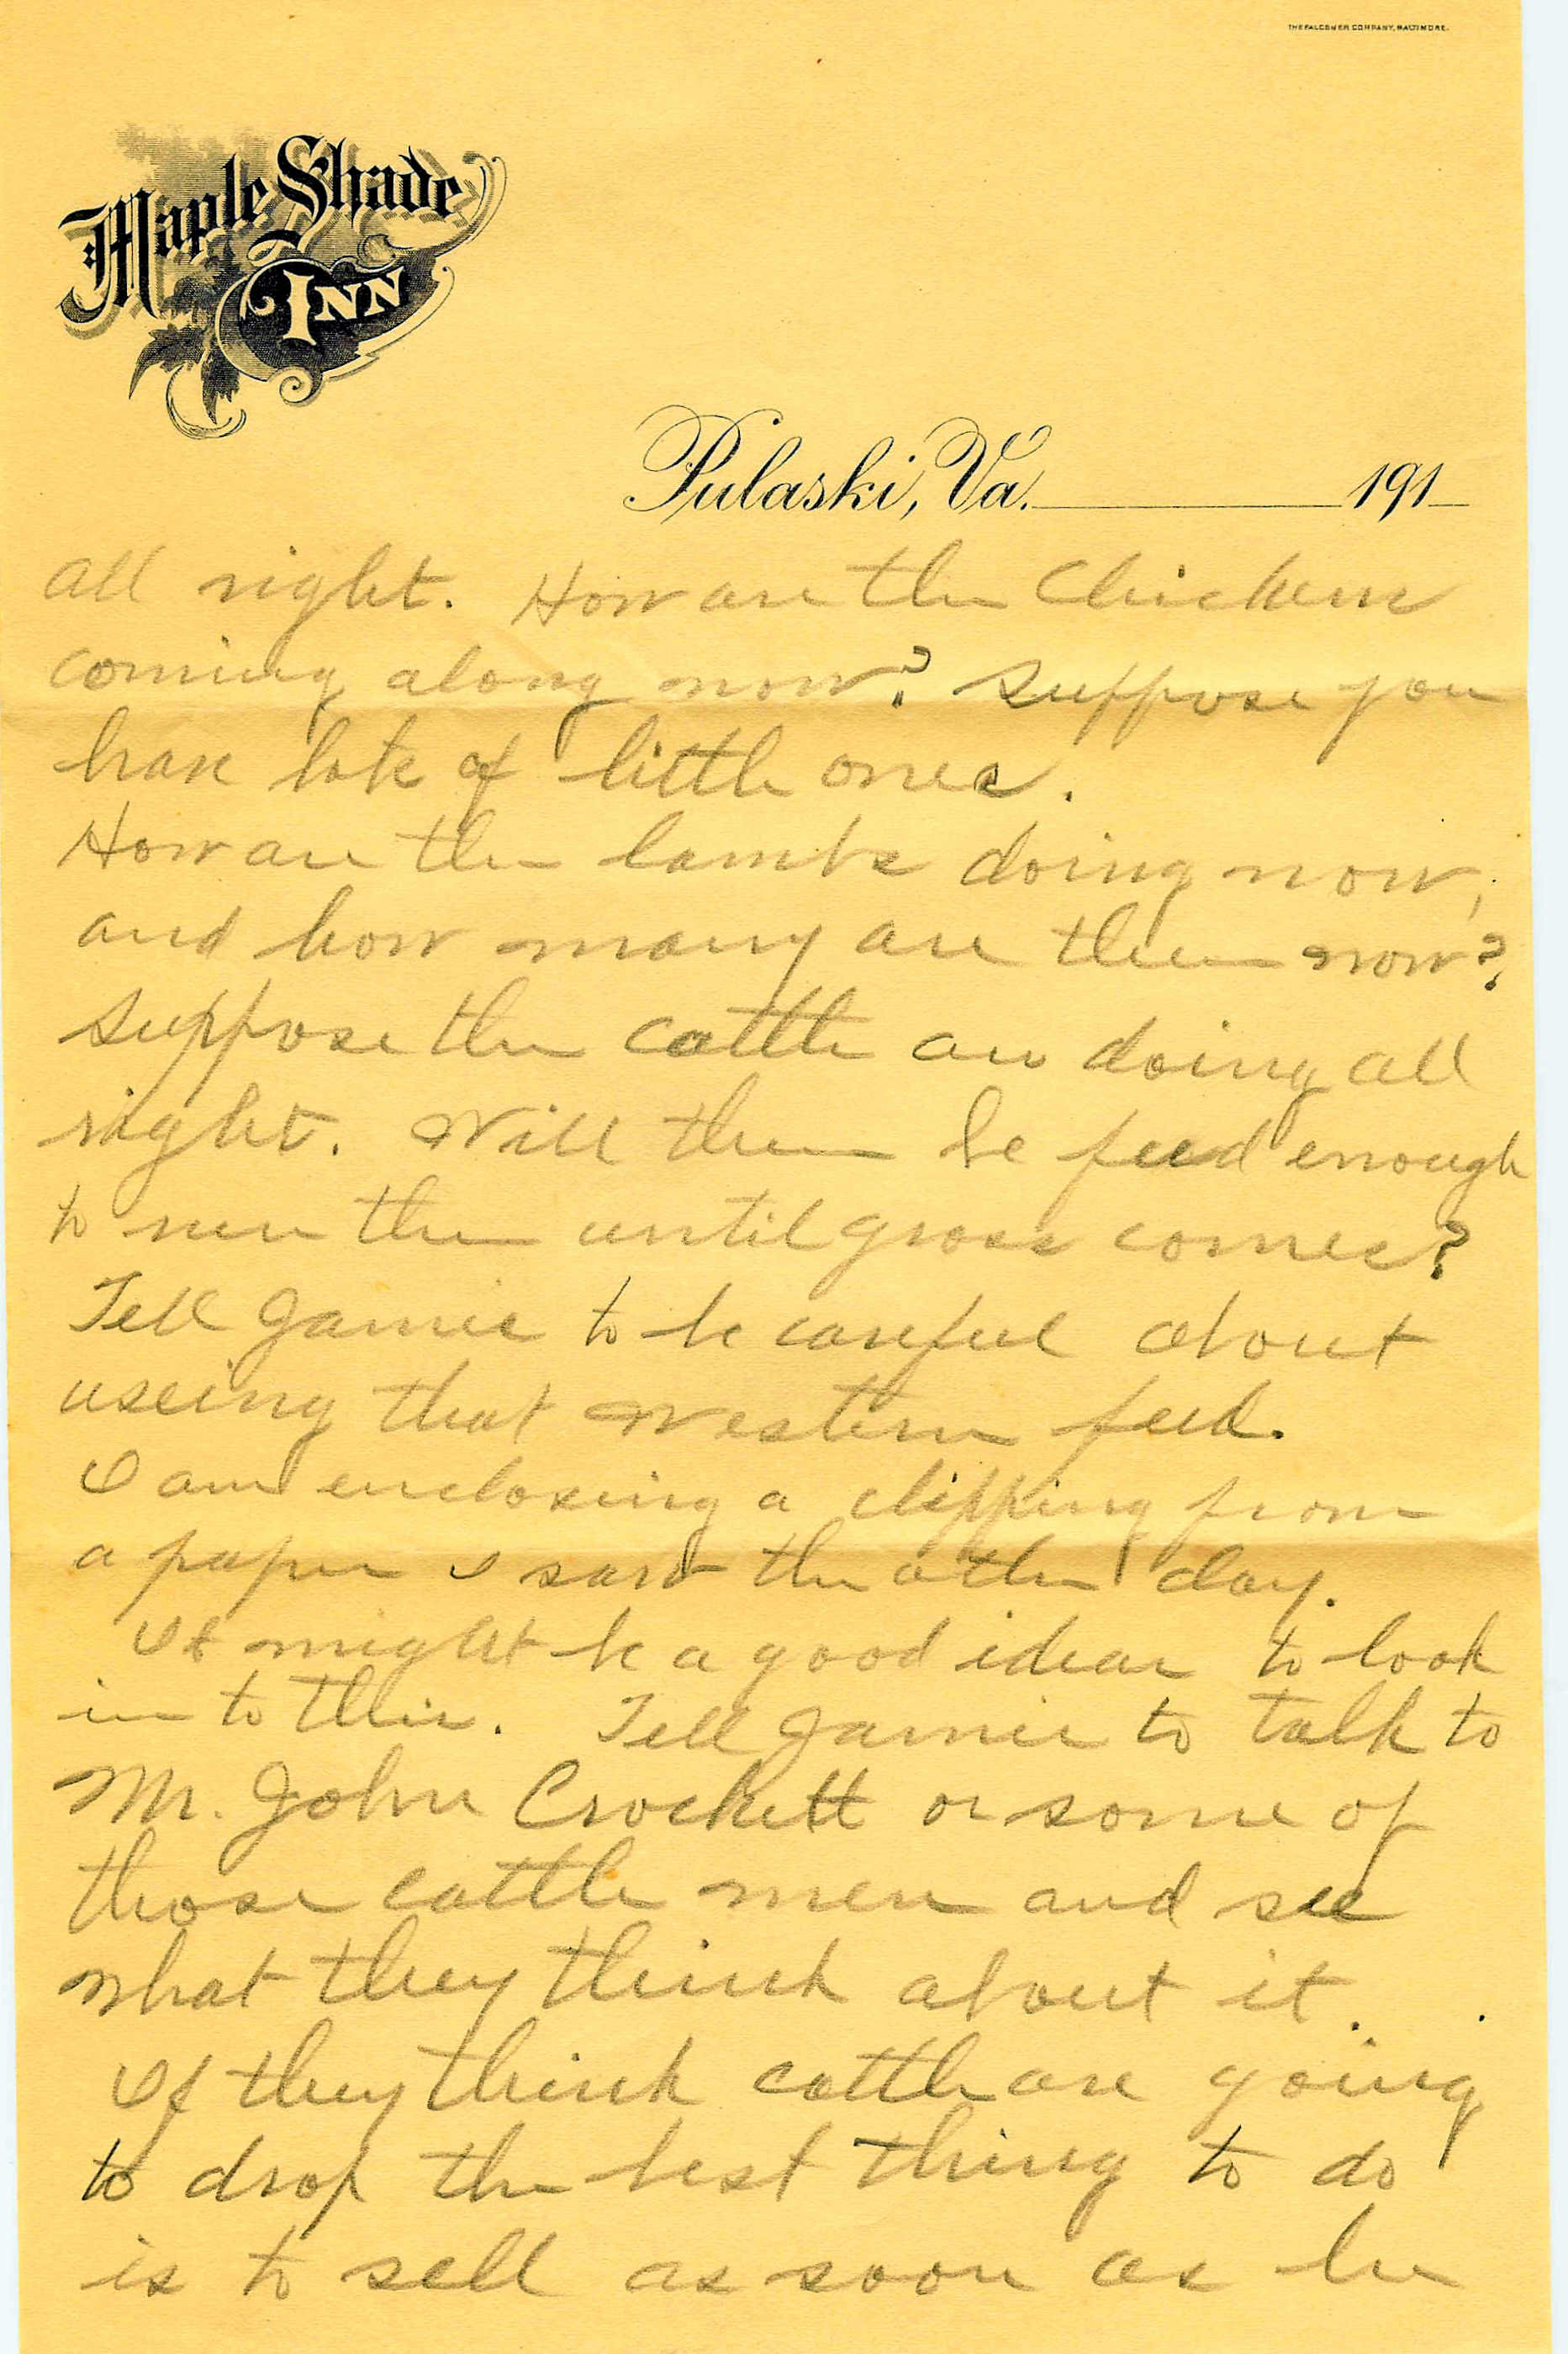 THE FALCONER COMPANY, BALTIMORE.
Maple Shade
INN
Pulaski, Va. 191
all right. How are the Chickens
coming along now? Suppose you
have lots of little ones.
How are the lambs doing now,
and how many are there now?
Suppose the cattle are doing all
right. Will there be feed enough
to run them until grass comes?
Tell Jamie to be careful about
useing that Western feed.
I am enclosing a clipping from
a paper I saw the other day.
It might be a good idear to look
in to this. Tell Jamie to talk to
Mr. John Crockett or some of
those cattle men and see
what they think about it.
If they think cattle are going
to drop the best thing to do
is to sell as soon as he